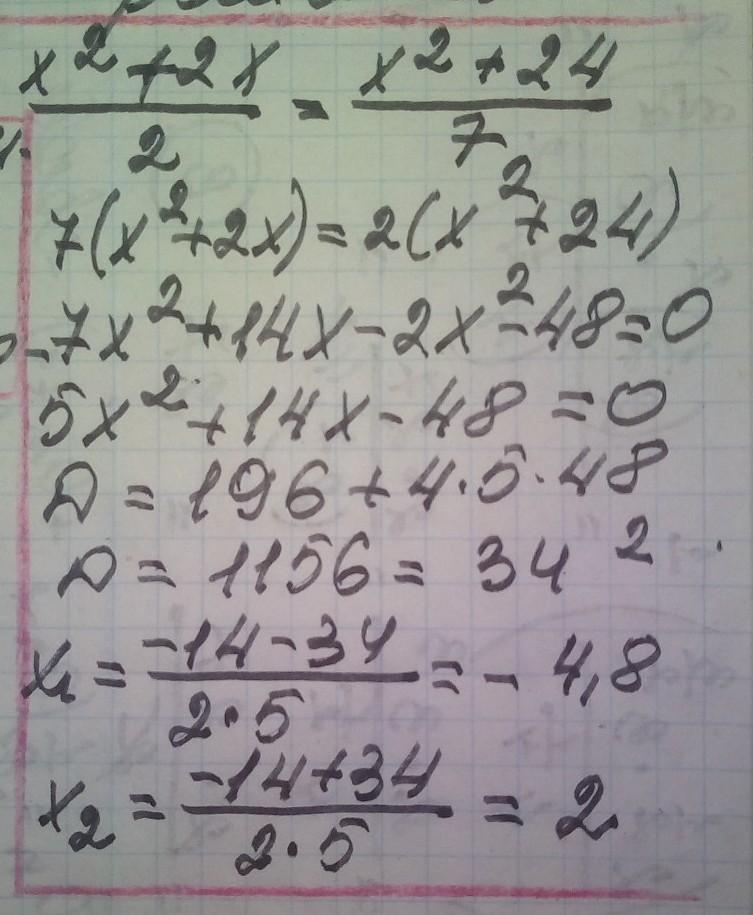 x²+2x/2 = x²+24/7
7(x²+2x)=2(x²+24)
7x²+14x-2x²-48=0
5x²+14x-48=0
D=196+4·5·48
D=1156=34²
x₁=-14-34/2·5=-4,8
x₂=-14+34/2·5=2